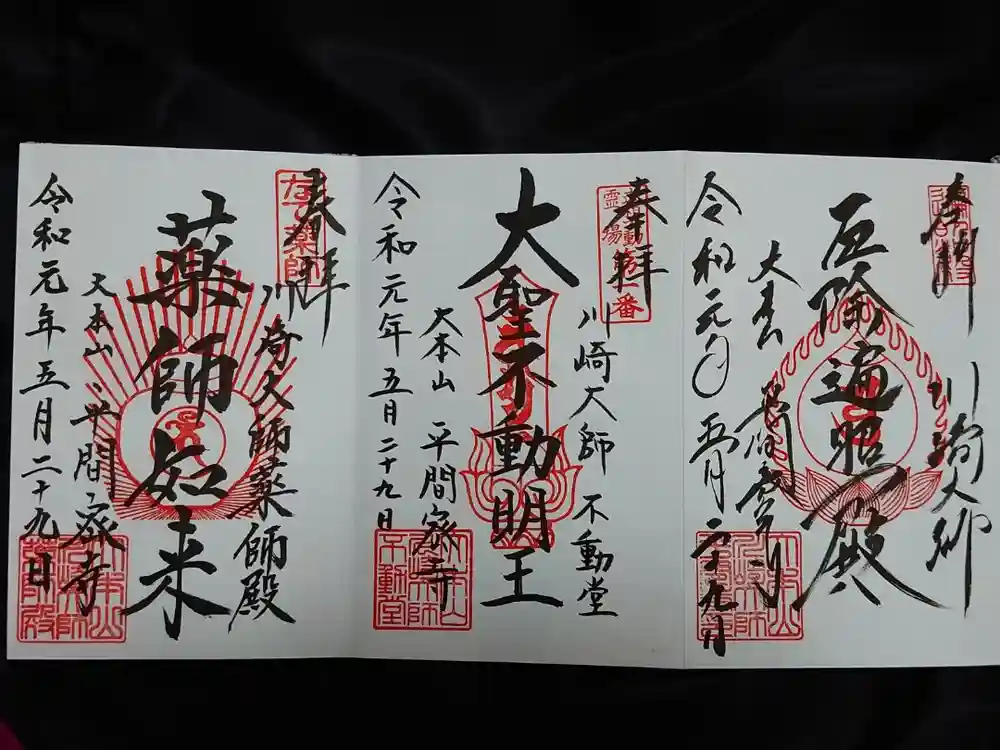 奉拝
川崎大師
厄除遍照殿
大本山
平間寺
令和元年五月二十九日
奉拝
川崎大師 不動堂
大聖不動明王
大本山 平間寺
令和元年五月二十九日
不動堂
奉拝
なで薬師
川崎大師薬師殿
薬師如来
大本山 平間寺
令和元年五月二十九日